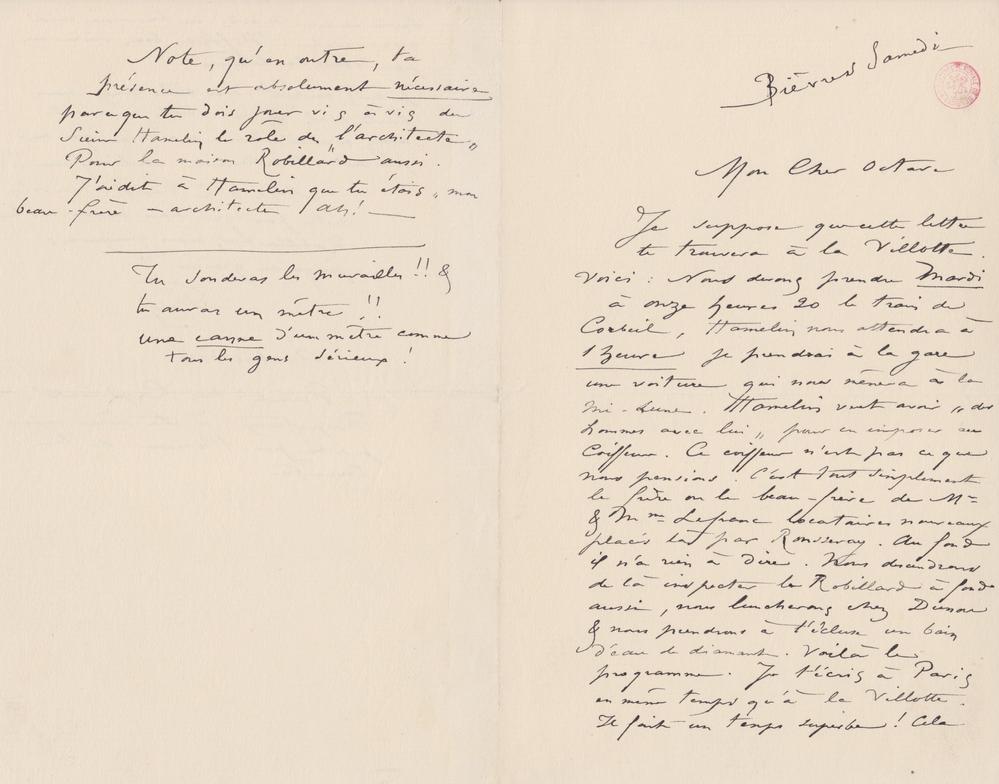 Bièvres Samedi
Mon Cher Octave
Je suppose que cette lettre
te trouvera à la Villotte.
Voici : Nous devons prendre Mardi
à onze heures 20 le train de
Corbeil, Hamelin nous attendra à
1 heure je prendrai à la gare
une voiture qui nous mènera à la
mi-Lune. Hamelin veut avoir „des
hommes avec lui„ pour en imposer au
Coiffeur. Ce coiffeur n'est pas ce que
nous pensions. C'est tout simplement
le frère ou le beau-frère de Mr
& Mme Lefranc locataires nouveaux
placés là par Rousseray. Au fond
il n'a rien à dire. Nous descendrons
de là inspecter le Robillard à fond
aussi, nous luncherons chez
& nous prendrons à l'écluse un bain
d'eau de diamant. Voilà le
programme. Je t'écris à Paris
en même temps qu'à la Villotte.
Il fait un temps superbe ! Cela
Note, qu'en outre, ta
présence est absolument nécessaire
parceque tu dois jouer vis à vis du
Sieur Hamelin le rôle de „l'architecte„
Pour la maison Robillard aussi.
J'ai dit à Hamelin que tu étais „mon
beau-frère — architecte Ah! —
Tu sonderas les murailles !! &
tu auras un mètre !!
une canne d'un mètre comme
tous les gens sérieux !